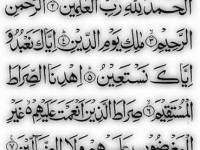 الحمد لله رب العلمين ﴿٢﴾ الرحمن
الرحيم ﴿٣﴾ ملك يوم الدين ﴿٤﴾ إياك نعبد و
إياك نستعين ﴿٥﴾ اهدنا الصراط
المستقيم ﴿٦﴾ صراط الذين أنعمت عليهم غير
المغضوب عليهم ولا الضالين ﴿٧﴾